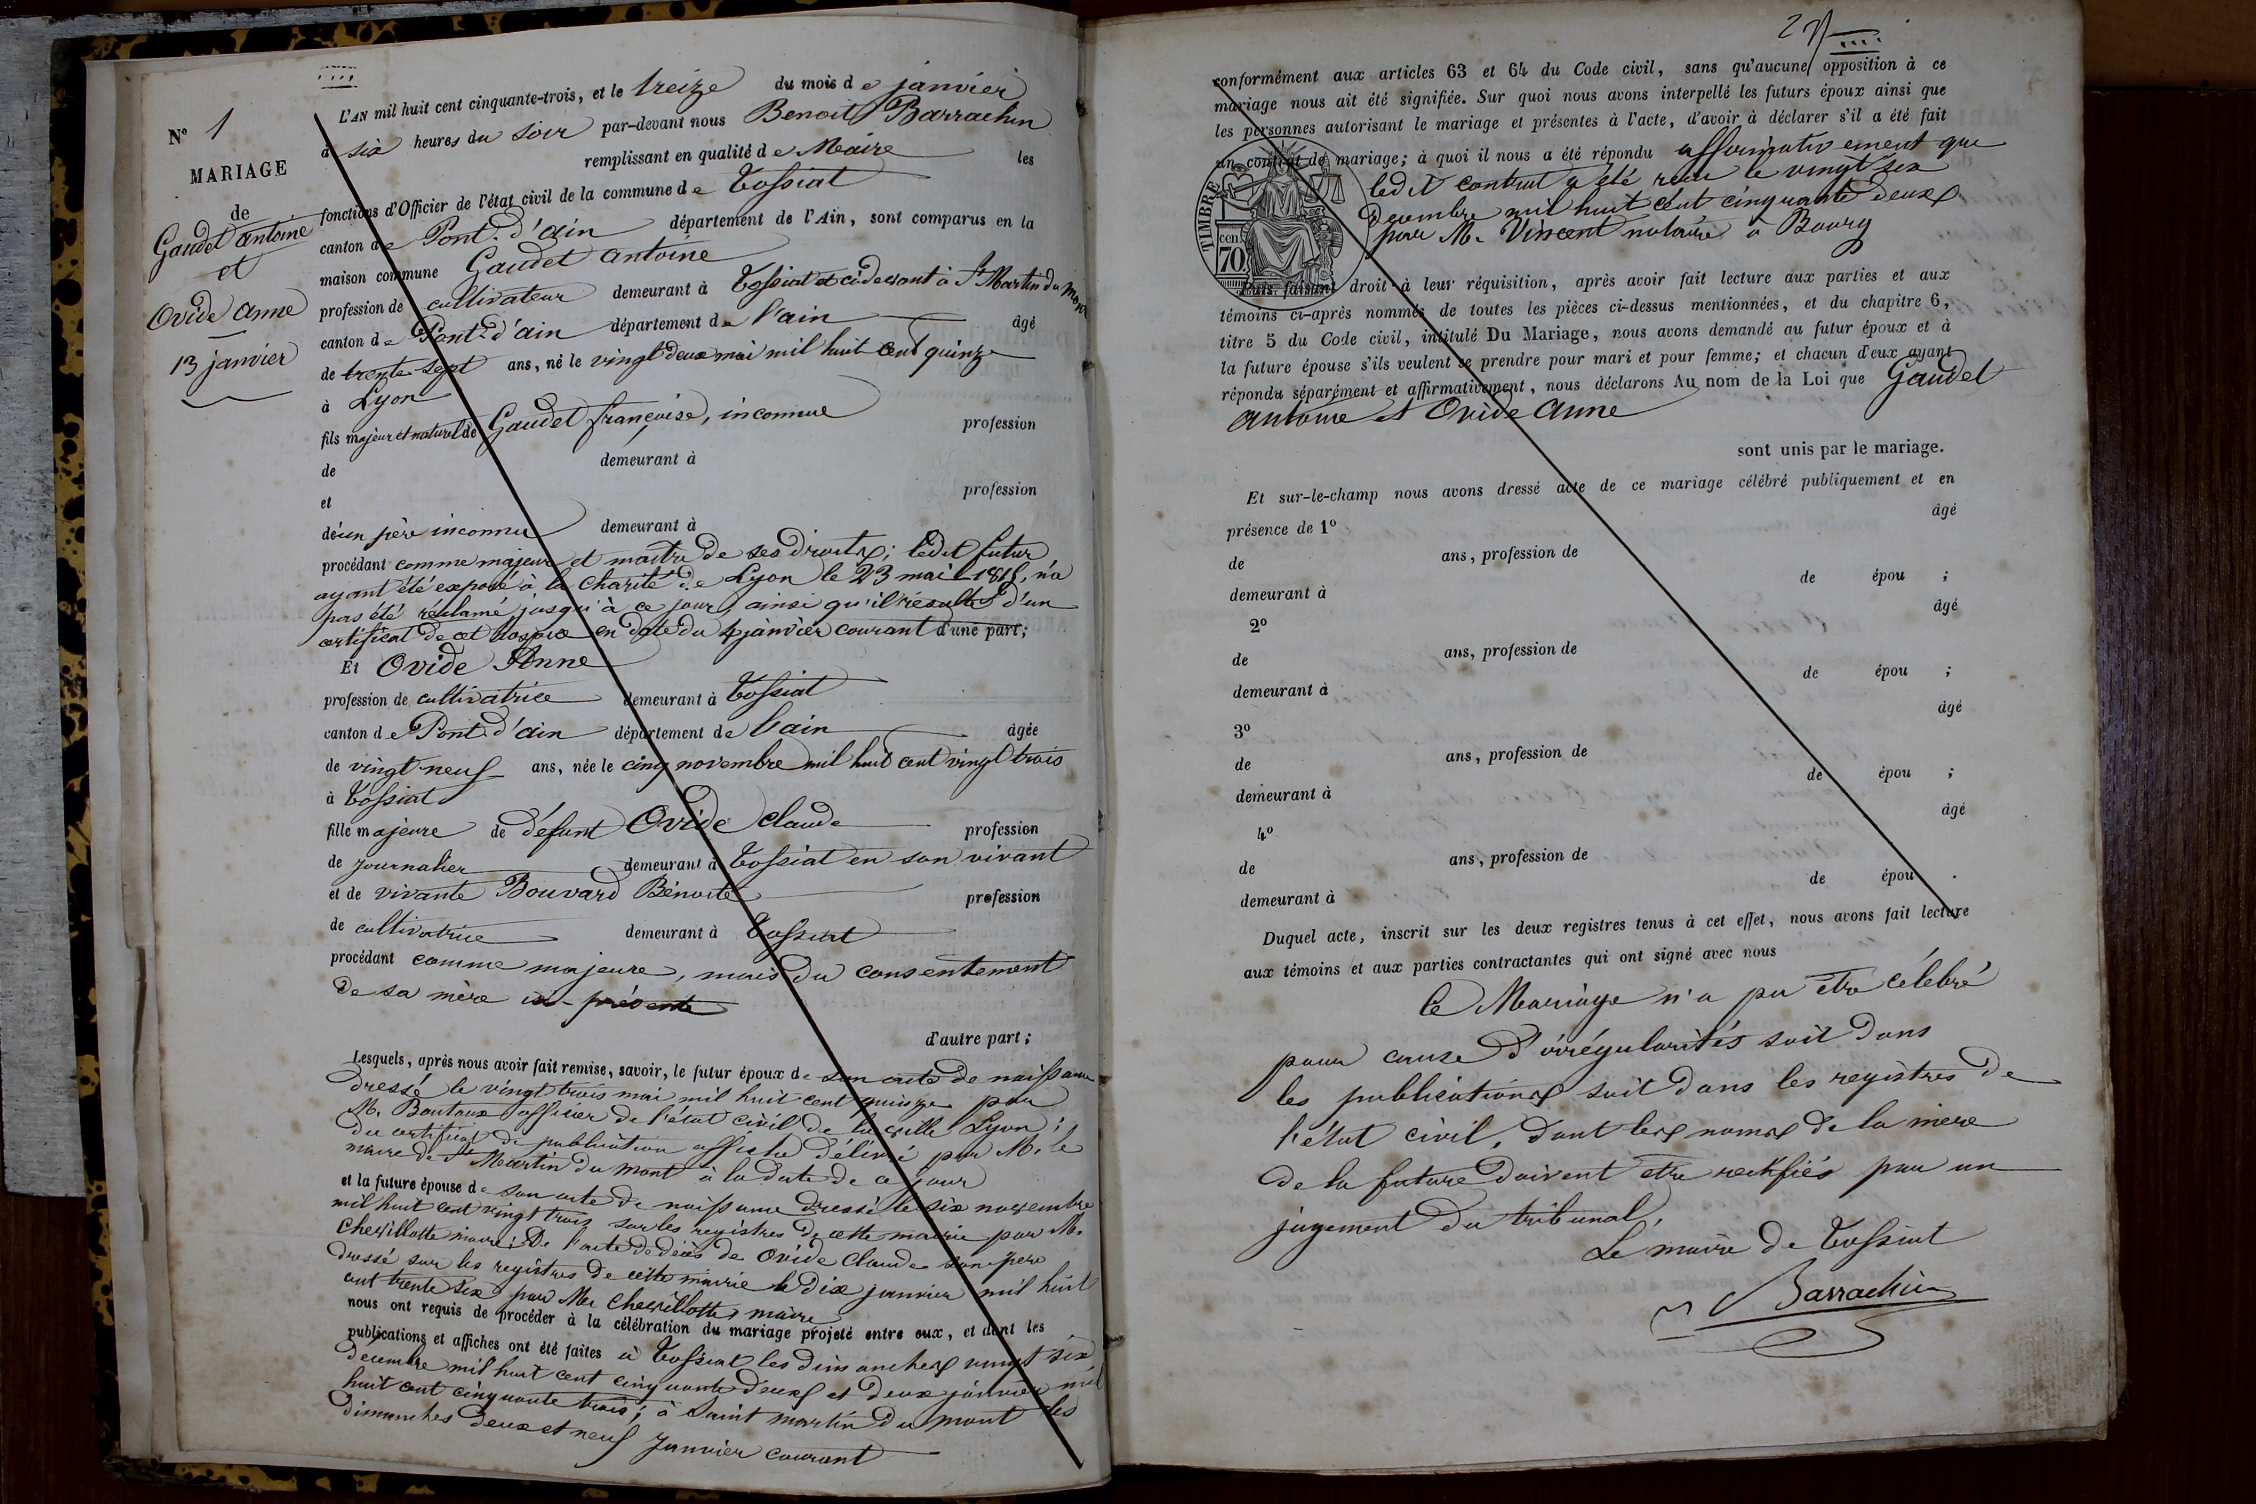 N° 1
MARIAGE
de
Gaudet antoine
et
Ovide Anne
13 janvier
L'AN mil huit cent cinquante-trois, et le treize du mois de janvier
à six heures du soir par-devant nous Benoit Barrachin
remplissant en qualité de Maire les
fonctions d'Officier de l'état civil de la commune de Tossiat
canton de Pont-d'ain département de l'Ain, sont comparus en la
maison commune Gaudet antoine
profession de cultivateur demeurant à Tossiat et cidevant à St Martin du Mont
canton de Pont-d'ain département de l'ain âgé
de trente sept ans, né le vingt deux mai mil huit cent quinze
à Lyon
fils majeur et naturel de Gaudet françoise, inconnue profession
de demeurant à
et profession
de un père inconnu demeurant à
procédant comme majeur et maitre de ses droits; ledit futur
ayant été exposé à la charité de Lyon le 23 mai 1815, n'a
pas été réclamé jusqu'à ce jour, ainsi qu'il résulte d'un
certificat de cet hospice en date du 4 janvier courant d'une part;
Et Ovide Anne
profession de cultivatrice demeurant à Tossiat
canton de Pont-d'ain département de l'ain âgée
de vingt neuf ans, née le cinq novembre mil huit cent vingt trois
à Tossiat
fille majeure de défunt Ovide claude profession
de journalier demeurant à Tossiat en son vivant
et de vivante Bouvard Bénoite profession
de cultivatrice demeurant à Tossiat
procédant comme majeure, mais du consentement
de sa mère ici présente
d'autre part;
Lesquels, après nous avoir fait remise, savoir, le futur époux de son acte de naissance
dressé le vingt trois mai mil huit cent quinze par
M. Boutaux officier de l'état civil de la ville Lyon;
du certificat de publication affiche délivré par M. le
maire de St Martin du Mont à la date de ce jour
et la future épouse de son acte de naissance dressé le six novembre
mil huit cent vingt trois sur les registres de cette mairie par M.
Chevillotte maire; De l'acte de décès de Ovide Claude son père
dressé sur les registres de cette mairie le dix janvier mil huit
cent trente six par Mr Chevillotte, maire
nous ont requis de procéder à la célébration du mariage projeté entre eux, et dont les
publications et affiches ont été faites à Tossiat les dimanches vingt six
decembre mil huit cent cinquante deux et deux janvier mil
huit cent cinquante trois; à Saint martin du mont les
dimanches deux et neuf janvier courant
conformément aux articles 63 et 64 du Code civil, sans qu'aucune opposition à ce
mariage nous ait été signifiée. Sur quoi nous avons interpellé les futurs époux ainsi que
les personnes autorisant le mariage et présentes à l'acte, d'avoir à déclarer s'il a été fait
un contrat de mariage; à quoi il nous a été répondu affirmativement que
ledit contrat a été recu le vingt six
decembre mil huit cent cinquante deux
par Me Vincent notaire à Bourg
TIMBRE
cen.
70
Puis faisant droit à leur réquisition, après avoir fait lecture aux parties et aux
témoins ci-après nommés de toutes les pièces ci-dessus mentionnées, et du chapitre 6,
titre 5 du Code civil, intitulé Du Mariage, nous avons demandé au futur époux et à
la future épouse s'ils veulent se prendre pour mari et pour femme; et chacun d'eux ayant
répondu séparément et affirmativement, nous déclarons Au nom de la Loi que Gaudet
antoine et Ovide Anne
sont unis par le mariage.
Et sur-le-champ nous avons dressé acte de ce mariage célébré publiquement et en
présence de 1° âgé
de ans, profession de
demeurant à de épou ;
2° âgé
de ans, profession de
demeurant à de épou ;
3° âgé
de ans, profession de
demeurant à de épou ;
4° âgé
de ans, profession de
demeurant à de épou .
Duquel acte, inscrit sur les deux registres tenus à cet effet, nous avons fait lecture
aux témoins et aux parties contractantes qui ont signé avec nous
Ce Mariage n'a pu être célébré
pour cause d'irrégularités soit dans
les publications soit dans les registres de
l'état civil, dont les noms de la mère
de la future doivent être rectifiés par un
jugement du tribunal.
Le maire de Tossiat
Barrachin